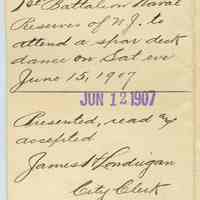 1st Battalion Naval
Reserves of N.J. to
attend a spar deck
dance on Sat eve
June 15, 1907
JUN 12 1907
Presented, read and
accepted
James H Londrigan
City Clerk